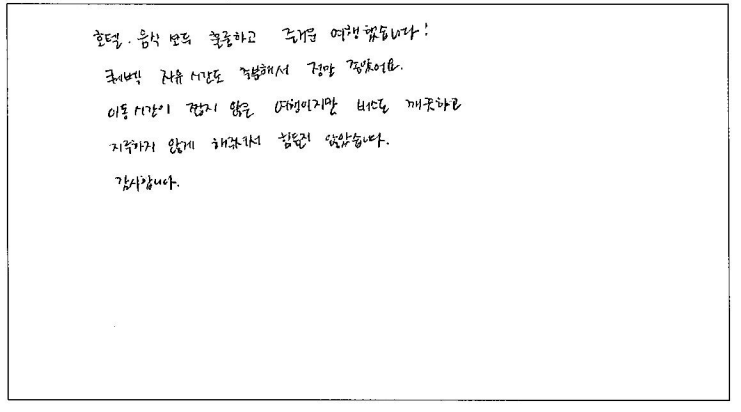 호텔. 음식 모두 훌륭하고 즐거운 여행 했습니다!
퀘벡 자유 시간도 충분해서 정말 좋았어요.
이동 시간이 짧지 않은 여행이지만 버스도 깨끗하고
지루하지 않게 해주셔서 힘들지 않았습니다.
감사합니다.